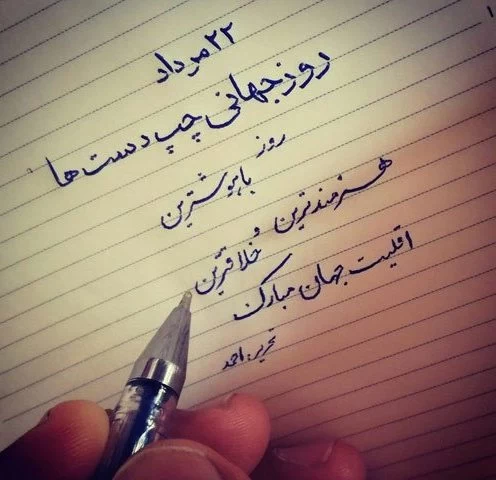 ۲۲ مرداد
روز جهانی چپ دست ها
روز
باهوشترین
هنرمندترین و
خلاقترین
اقلیت جهان مبارک
تحریر: احمد